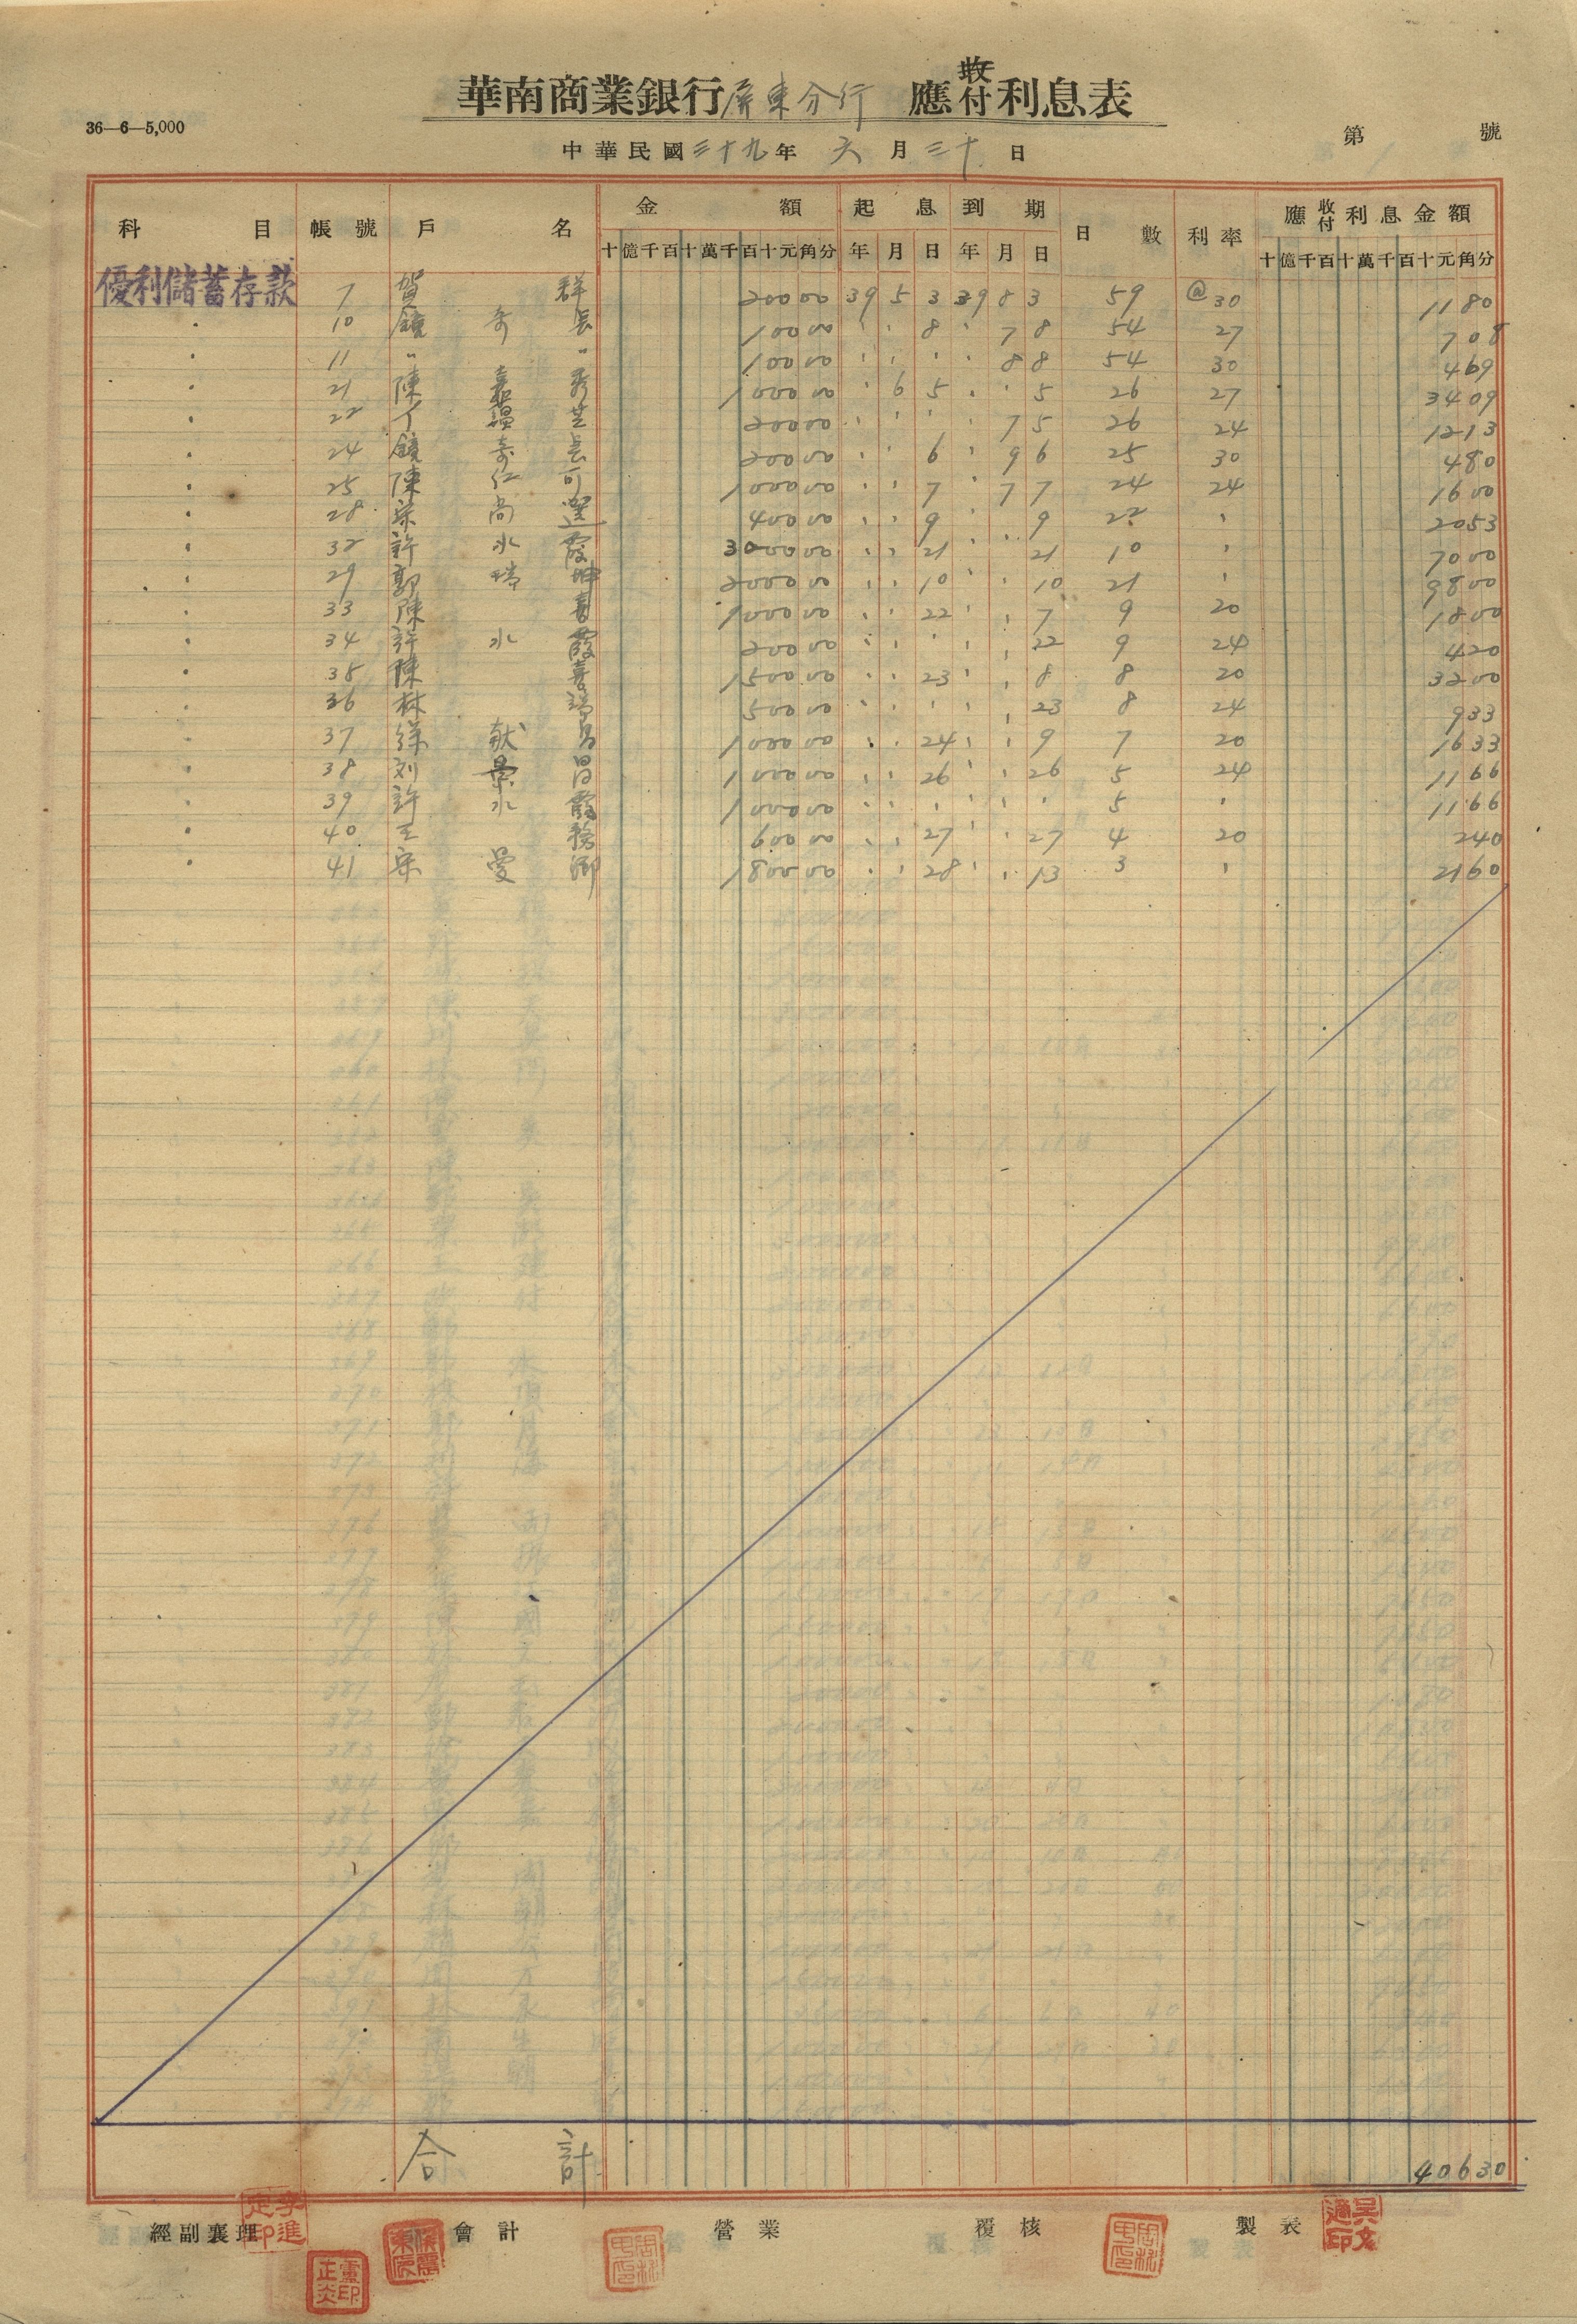 華南商業銀行屏東分行 應收付利息表
36—6—5,000
第 號
中華民國三十九年 六月三十日
科目 帳號 戶名 金額 起息 到期 日數 利率 應收付利息金額
十億千百十萬千百十元角分 年月日 年月日 十億千百十萬千百十元角分
優利儲蓄存款 7 賀 群 20000 39 5 3 39 8 3 59 @30 1180
〃 10 鐘 奇 長 10000 〃 〃 8 〃 7 8 54 27 708
〃 11 〃 〃 10000 〃 〃 〃 〃 8 8 54 30 469
〃 21 陳 嘉 秀 100000 〃 6 5 〃 〃 5 26 27 3409
〃 22 丁 芝 20000 〃 〃 〃 〃 7 5 26 24 1213
〃 24 鐘 奇 長 20000 〃 〃 6 〃 9 6 25 30 480
〃 25 陳 仁 可 100000 〃 〃 7 〃 7 7 24 24 1600
〃 28 宗 尚 選 40000 〃 〃 9 〃 〃 9 22 〃 2053
〃 32 許 水 霞 300000 〃 〃 21 〃 〃 21 10 〃 7000
〃 29 郭 瑞 坤 200000 〃 〃 10 〃 〃 10 21 〃 9800
〃 33 陳 喜 100000 〃 〃 22 〃 〃 7 9 20 1800
〃 34 許 水 霞 20000 〃 〃 〃 〃 〃 22 9 24 420
〃 35 陳 喜 150000 〃 〃 23 〃 〃 8 8 20 3200
〃 36 林 50000 〃 〃 〃 〃 〃 23 8 24 933
〃 37 徐 献 100000 〃 〃 24 〃 〃 9 7 20 1633
〃 38 刘 景 昌 100000 〃 〃 26 〃 〃 26 5 24 1166
〃 39 許 水 霞 100000 〃 〃 〃 〃 〃 〃 5 〃 1166
〃 40 王 務 60000 〃 〃 27 〃 〃 27 4 20 240
〃 41 宋 曼 卿 180000 〃 〃 28 〃 〃 13 3 〃 2160
合計 40630
經副襄理 會計 營業 覆核 製表